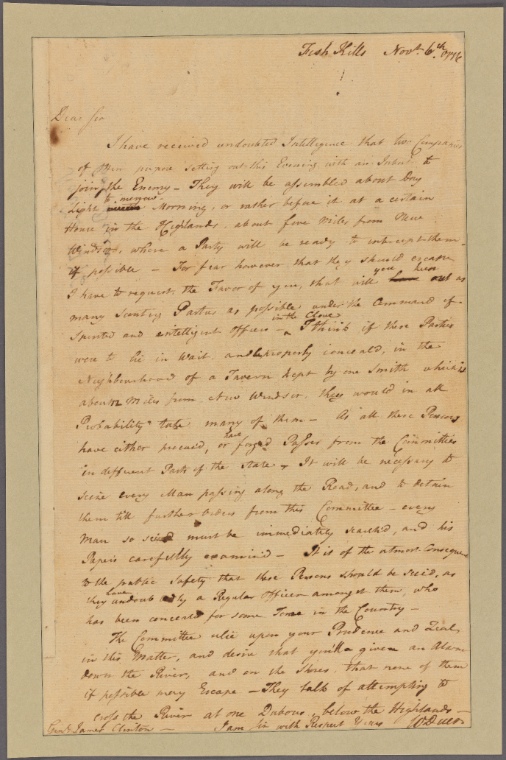 Fish Kills Novr. 6th. 1776
Dear Sir
I have received undoubted Intelligence that two Companies
of Men purpose setting out this Evening with an Intent to
join the Enemy – They will be assembled about Day
Light to morrow Morning, or rather before it at a certain
House in the Highlands, about five Miles from New
Windsor, where a Party will be ready to intercept them
if possible – For fear however that they should escape
I have to request the Favor of you, that you will have out as
many Scouting Parties as possible under the Command of
Spirited and intelligent Officers – in the Clove I think if these Parties
were to lie in Wait and properly conceald, in the
Neighbourhood of a Tavern kept by one Smith which is
about 12 Miles from New Windsor, they would in all
Probability take many of them – As all these Persons
have either procured, or have forged Passes from the Committees
in different Parts of the State – It will be necessary to
seize every Man passing along the Road, and to detain
them till further Orders from this Committee – every
Man so seized must be immediately searchd, and his
Papers carefully examined – It is of the utmost Consequence
to the public Safety that these Persons should be seizd, as
they have undoubtedly a Regular Officer amongst them, who
has been conceald for some Time in the Country –
The Committee relie upon your Prudence and Zeal,
in this Matter, and desire that you'll given an Alarm
down the River, and on the Shores that none of them
if possible may Escape – They talk of attempting to
cross the River at one Dubois, below the Highlands –
Genl. James Clinton – I am Sir with Respect Yours Wm Duer